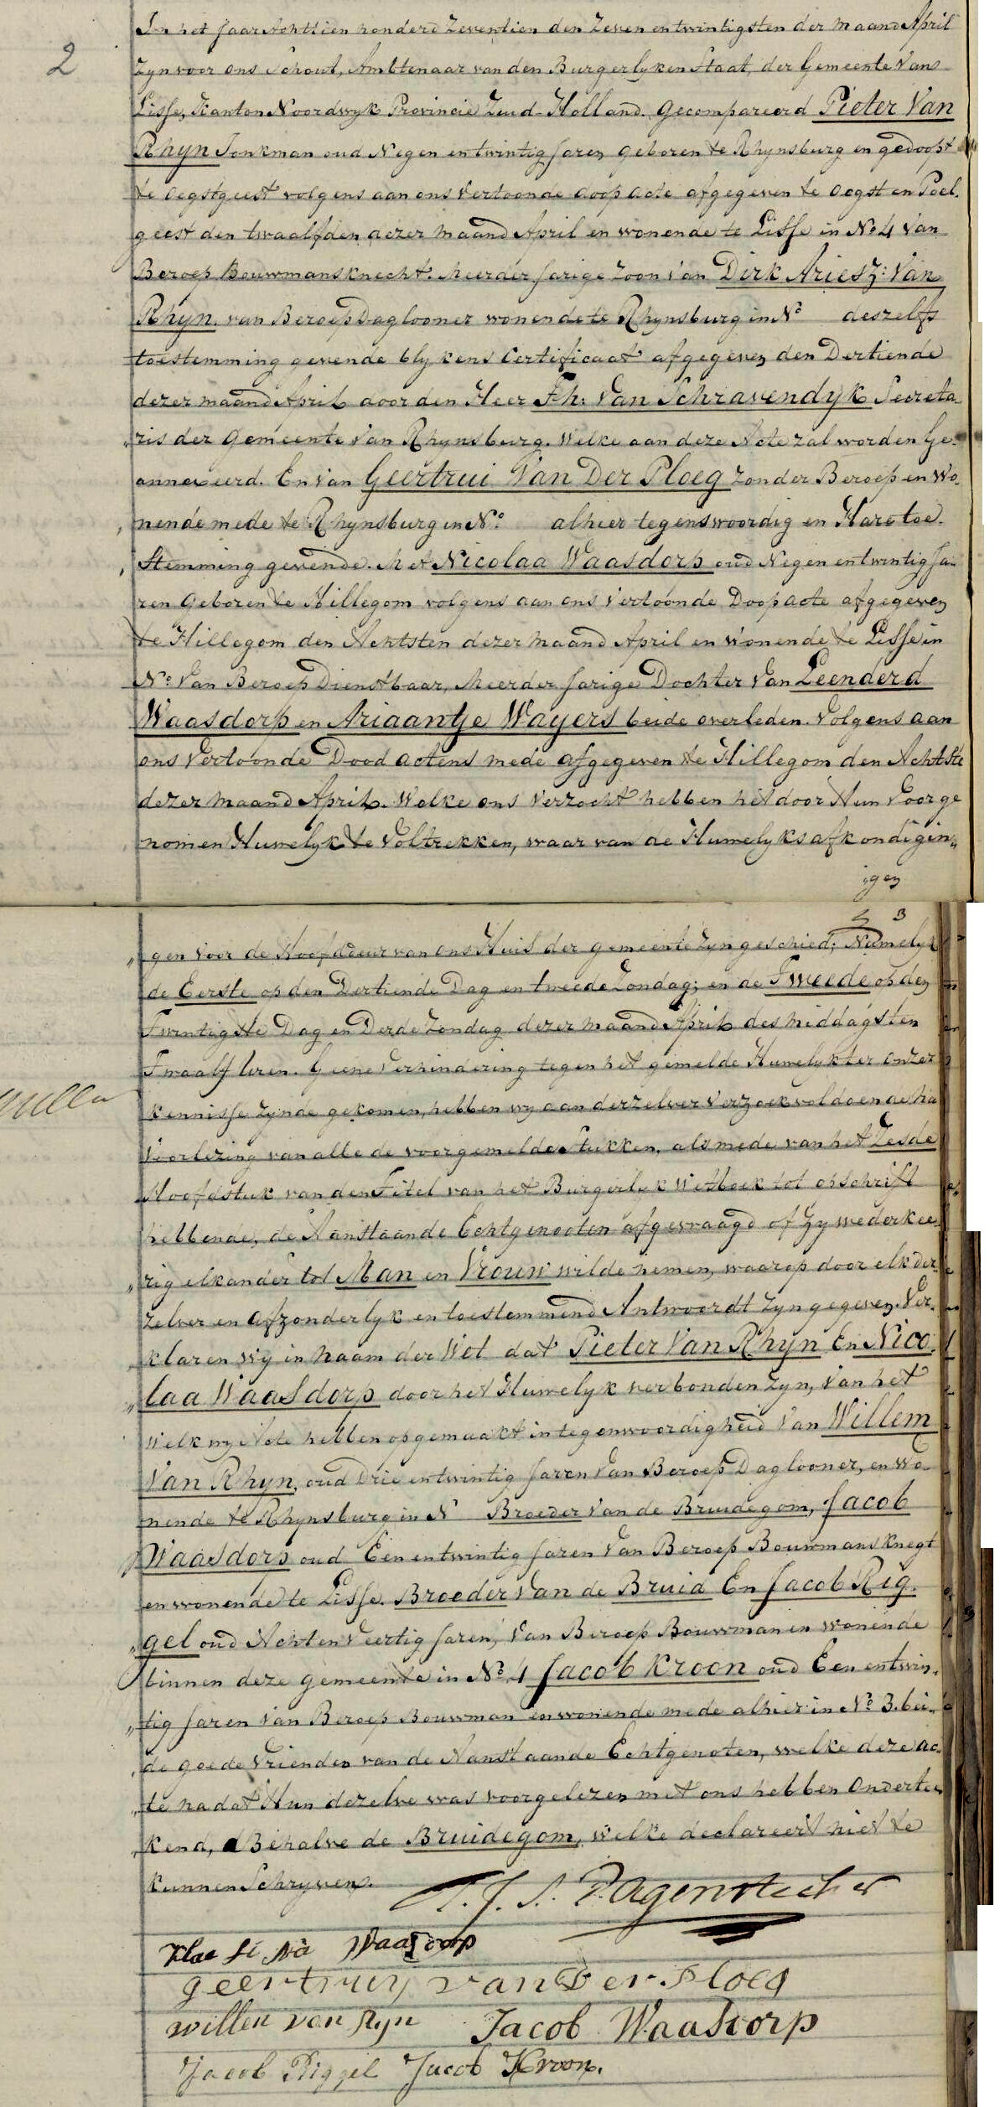 In het Jaar Achttien honderd Zeventien den Zeven en twintigsten der maand April
2
Zyn voor ons Schout, Ambtenaar van den Burgerlyken Staat, der Gemeente Van
Lisse, Kanton Noordwyk Provincie Zuid-Holland. Gecompareerd Pieter Van
Rhyn Jonkman oud Negen en twintig Jaren Geboren te Rhynsburg en gedoopt
te Oegstgeest volgens aan ons Vertoonde doop acte afgegeven te Oegst en Poel-
geest den twaalfden dezer maand April en wonende te Lisse in No 4 Van
Beroep Bouwmansknecht. Meerder Jarige Zoon Van Dirk Ariesz: Van
Rhyn. van Beroep Daglooner wonende te Rhynsburg in No deszelfs
toestemming gevende blykens Certificaat afgegeven den Dertiende
dezer maand April door den Heer Fh: Van Schravendyk Secreta-
ris der Gemeente Van Rhynsburg. Welke aan deze Acte zal worden Ge-
annexeerd. En Van Geertrui Van Der Ploeg Zonder Beroep en Wo-
nende mede te Rhynsburg in No alhier tegenswoordig en Hare toe-
Stemming gevende. Met Nicolaa Waasdorp oud Negen en twintig Ja-
ren Geboren te Hillegom volgens aan ons Vertoonde Doop acte afgegeven
te Hillegom den Achtsten dezer maand April en Wonende te Lisse in
No Van Beroep Dienstbaar, Meerder Jarige Dochter Van Leenderd
Waasdorp en Ariaantje Wayers beide overleden. Volgens aan
ons Vertoonde Dood actens mede afgegeven te Hillegom den Achtste
dezer maand April. Welke ons Verzocht hebben het door Hun Voorge
nomen Huwelyk te Voltrekken, waar van de Huwelyks afkondigin"
gen
3
"gen voor de Hoofdeur van ons Huis der gemeente Zyn geschied; Namelyk
de Eerste op den Dertiende Dag en tweede Zondag; en de Tweede op den
Twintigste Dag en Derde Zondag dezer maand April des middags ten
Twaalf Uren. Geene Verhindering tegen het gemelde Huwelyk ter onzer
kennisse Zynde gekomen, hebben wy aan derzelver Verzoek voldoende na
Voorlezing van alle de voorgemelde Stukken, alsmede van het Zesde
Hoofdstuk van den Titel van het Burgerlyk Wetboek tot opschrift
hebbende, de Aanstaande Echtgenooten afgevraagd of Zy wederkee-
rig elkander tot Man en Vrouw wilde nemen, waarop door elk der
zelver en afzonderlyk en toestemmend Antwoordt Zyn gegeven. Ver-
klaren Wy in Naam der Wet dat Pieter Van Rhyn En Nico
laa Waasdorp door het Huwelyk verbonden Zyn, Van het
Welk wy Acte hebben opgemaakt in tegenwoordigheid Van Willem
Van Rhyn, oud Drie en twintig Jaren Van Beroep Daglooner, en Wo
nende te Rhynsburg in N Broeder Van de Bruidegom, Jacob
Waasdorp oud Een en twintig Jaren Van Beroep Bouwmansknegt
en wonende te Lisse. Broeder Van de Bruid En Jacob Rig-
gel oud Acht en Veertig Jaren, Van Beroep Bouwman en wonende
binnen deze gemeente in No 4 Jacob Kroon oud Een en twin-
tig Jaren Van Beroep Bouwman en wonende mede alhier in No 3. bei-
de goede Vrienden van de Aanstaande Echtgenoten, welke deze ac-
te na dat Hun dezelve was voorgelezen met ons hebben Ondertee
kend, Behalve de Bruidegom, welke declareerd niet te
kunnen Schryven.
T. J. S. Pagenstecher
Waasdorp
geertruy van Der Ploeg
willem van Ryn Jacob Waasdorp
Jacob Riggel Jacob Kroon.